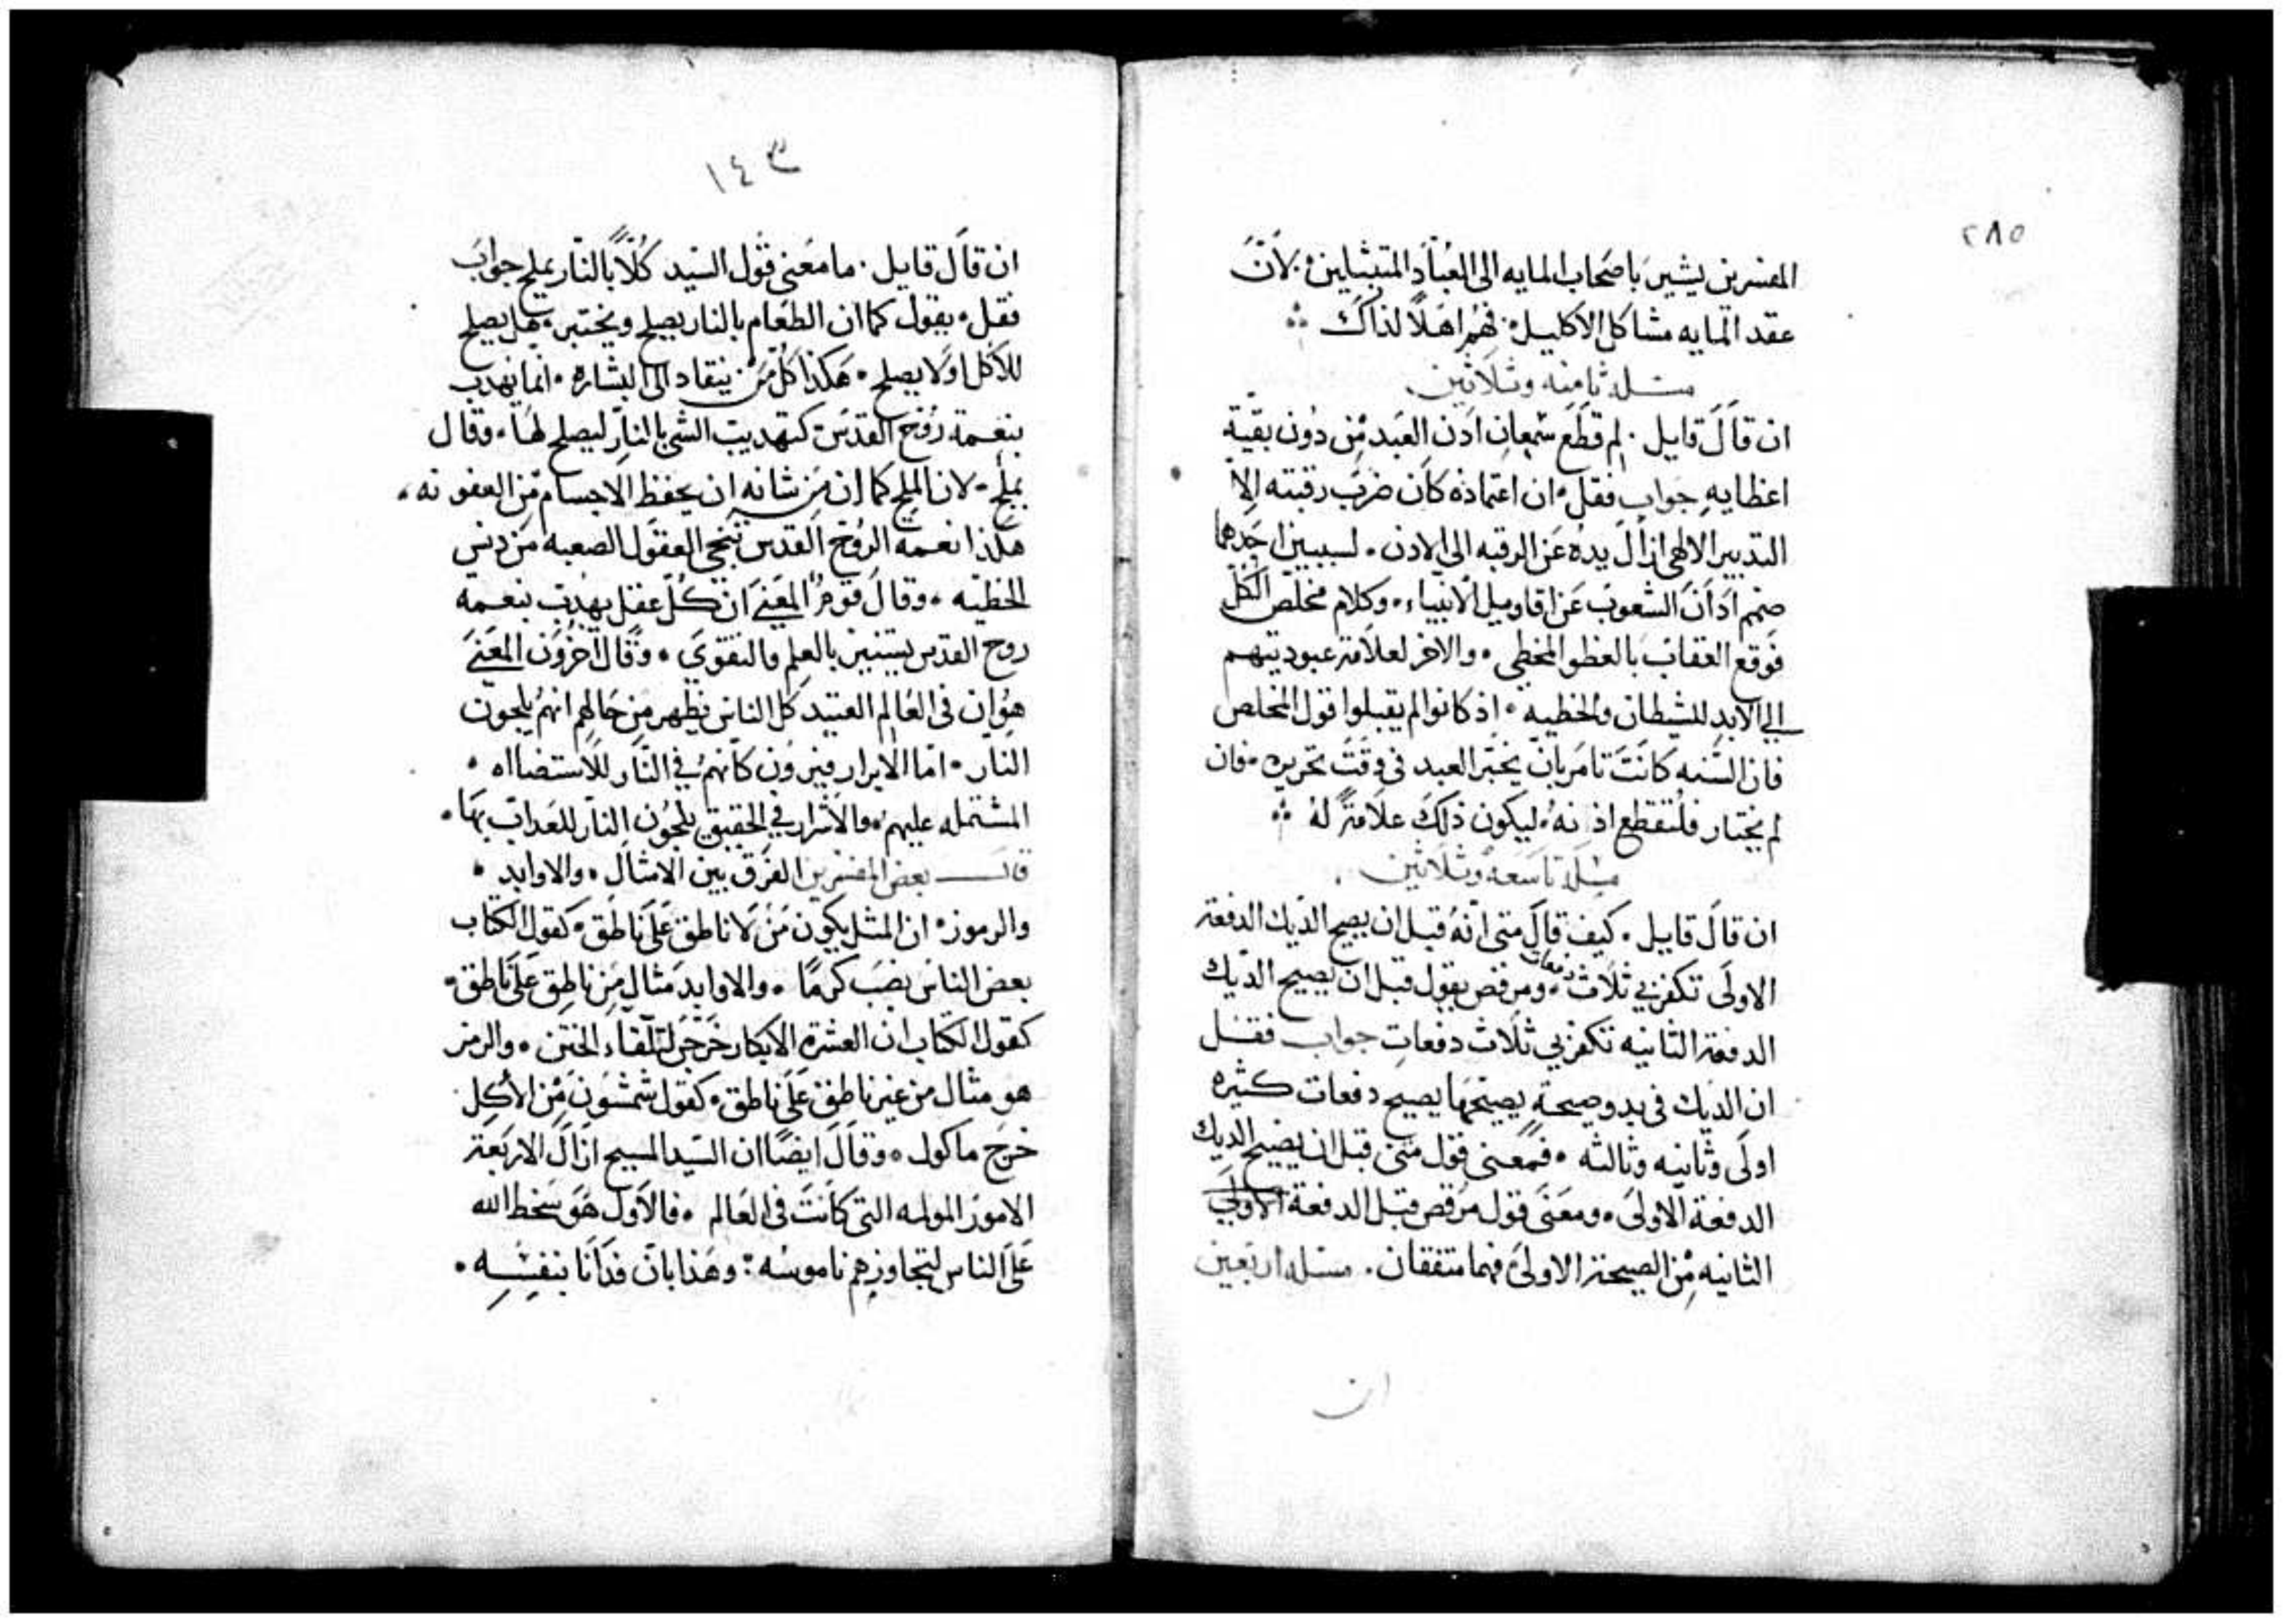 ٢٨٥
المفسرين يشير باصحاب المايه الى العباد المتبتلين. لانَّ
عقد المايه مشاكل الاكليل. فهم اهلاً لذاك
مسله ثامنه وثلاثين
ان قال قايل. لم قطع شمعان ادن العبد من دون بقية
اعظايه جواب فقل ان اعتماده كان ضرب رقبته الا
التدبير الالهي ازال يده عن الرقبه الى الادن. لسببين احدهما
صمم ادان الشعوب عن اقاويل الانبياء. وكلام مخلص الكل
فوقع العقاب بالعظو المخطي. والاخر لعلامة عبوديتهم
الي الابد للشيطان والخطيه. اذ كانوا لم يقبلوا قول المخلص
فان السنه كانت تامر بان يختبر العبد في وقت تحريره. فان
لم يختار فلتقطع اذنه. ليكون ذلك علامةً له
مسله تاسعه وثلاثين
ان قال قايل. كيف قال متى انه قبل ان يصيح الديك الدفعة
الاولى تكفر بي ثلاث دفعات. ومرقص يقول قبل ان يصيح الديك
الدفعة الثانيه تكفر بي ثلاث دفعات جواب فقل
ان الديك في بدو صيحةٍ يصيحها يصيح دفعات كثيره
اولى وثانيه وثالثه. فمعنى قول متى قبل ان يصيح الديك
الدفعة الاولى. ومعنى قول مرقص قبل الدفعة الاولي
الثانيه من الصيحة الاولى فهما متفقان. مسله اربعين
ان
١٤٣
ان قال قايل. ما معنى قول السيد كُلاً بالنار يملح جواب
فقل. يقول كما ان الطعام بالنار يصلح ويختبر. هل يصلح
للاكل او لا يصلح. هكذا كل من ينقاد الى البشاره. انما يهدب
بنعمة روح القدس كتهديب الشي بالنار ليصلح لها. وقال
يملح. لان الملح كما ان من شانه ان يحفظ الاجسام من العفونه.
هكذا نعمة الروح القدس تنجي العقول الصعبه من دنس
الخطيه. وقال قوم المعنى ان كل عقل يهدب بنعمة
روح القدس يستنير بالعلم والتقوى. وقال اخرون المعنى
هو ان في العالم العتيد كل الناس يظهر من حالهم انهم يلجون
النار. اما الابرار فيرون كانهم في النار للاستضااه.
المشتمله عليهم. والاشرار في الحقيق يلجون النار للعداب بها.
قال بعض المفسرين الفرق بين الامثال. والاوابد.
والرموز. ان المثل يكون من لا ناطق على ناطق. كقول الكتاب
بعض الناس نصب كرمًا. والاوابد مثال من ناطق على ناطق.
كقول الكتاب ان العشرة الابكار خرجن لتلقاء الختن. والرمز
هو مثال من غير ناطق على ناطق. كقول شمشون من الاكل
خرج ماكول. وقال ايضًا ان السيد المسيح ازال الاربعة
الامور المولمه التي كانت في العالم. فالاول هو سخط الله
على الناس لتجاوزهم ناموسه: وهذا بان فدانا بنفسه.